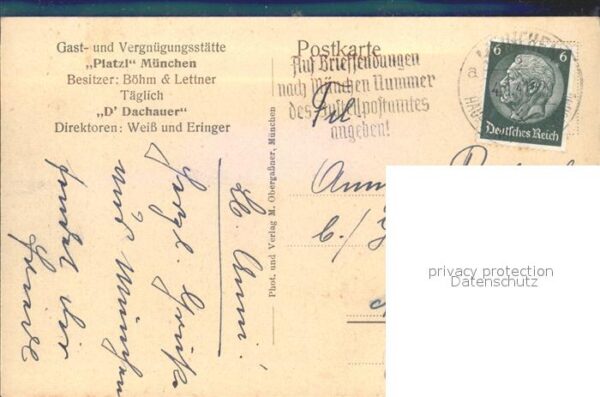 Gast- und Vergnügungsstätte
„Platzl" München
Besitzer: Böhm & Lettner
Täglich
„D' Dachauer"
Direktoren: Weiß und Eringer
Postkarte
Auf Briefsendungen
nach München Nummer
des Zustellpostamtes
angeben!
6 6
Deutsches Reich
MÜNCHEN
a
Phot. und Verlag M. Obergaßner, München
Frl
Lb. Anni!
Herzl. Grüße
aus München
sendet dir
privacy protection
Datenschutz